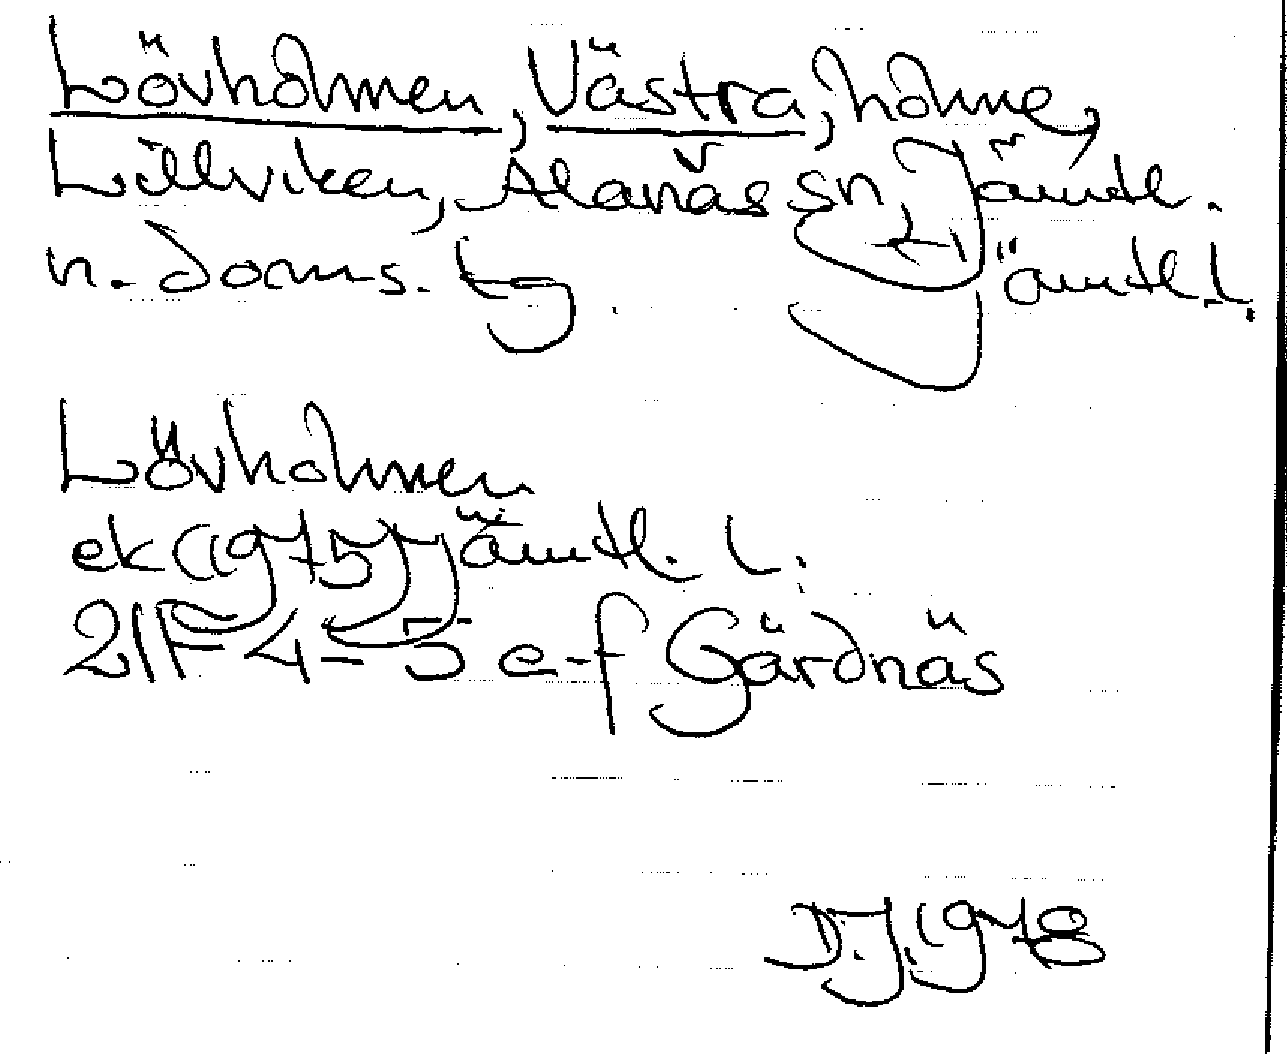 Lövholmen, Västra, holme,
Lillviken, Alanäs sn, Jämtl.
n. doms. tg Jämtl. l.
Lövholmen
ek (1975) Jämtl. l.
21F 4-5 e-f Gärdnäs
D.J. 1978